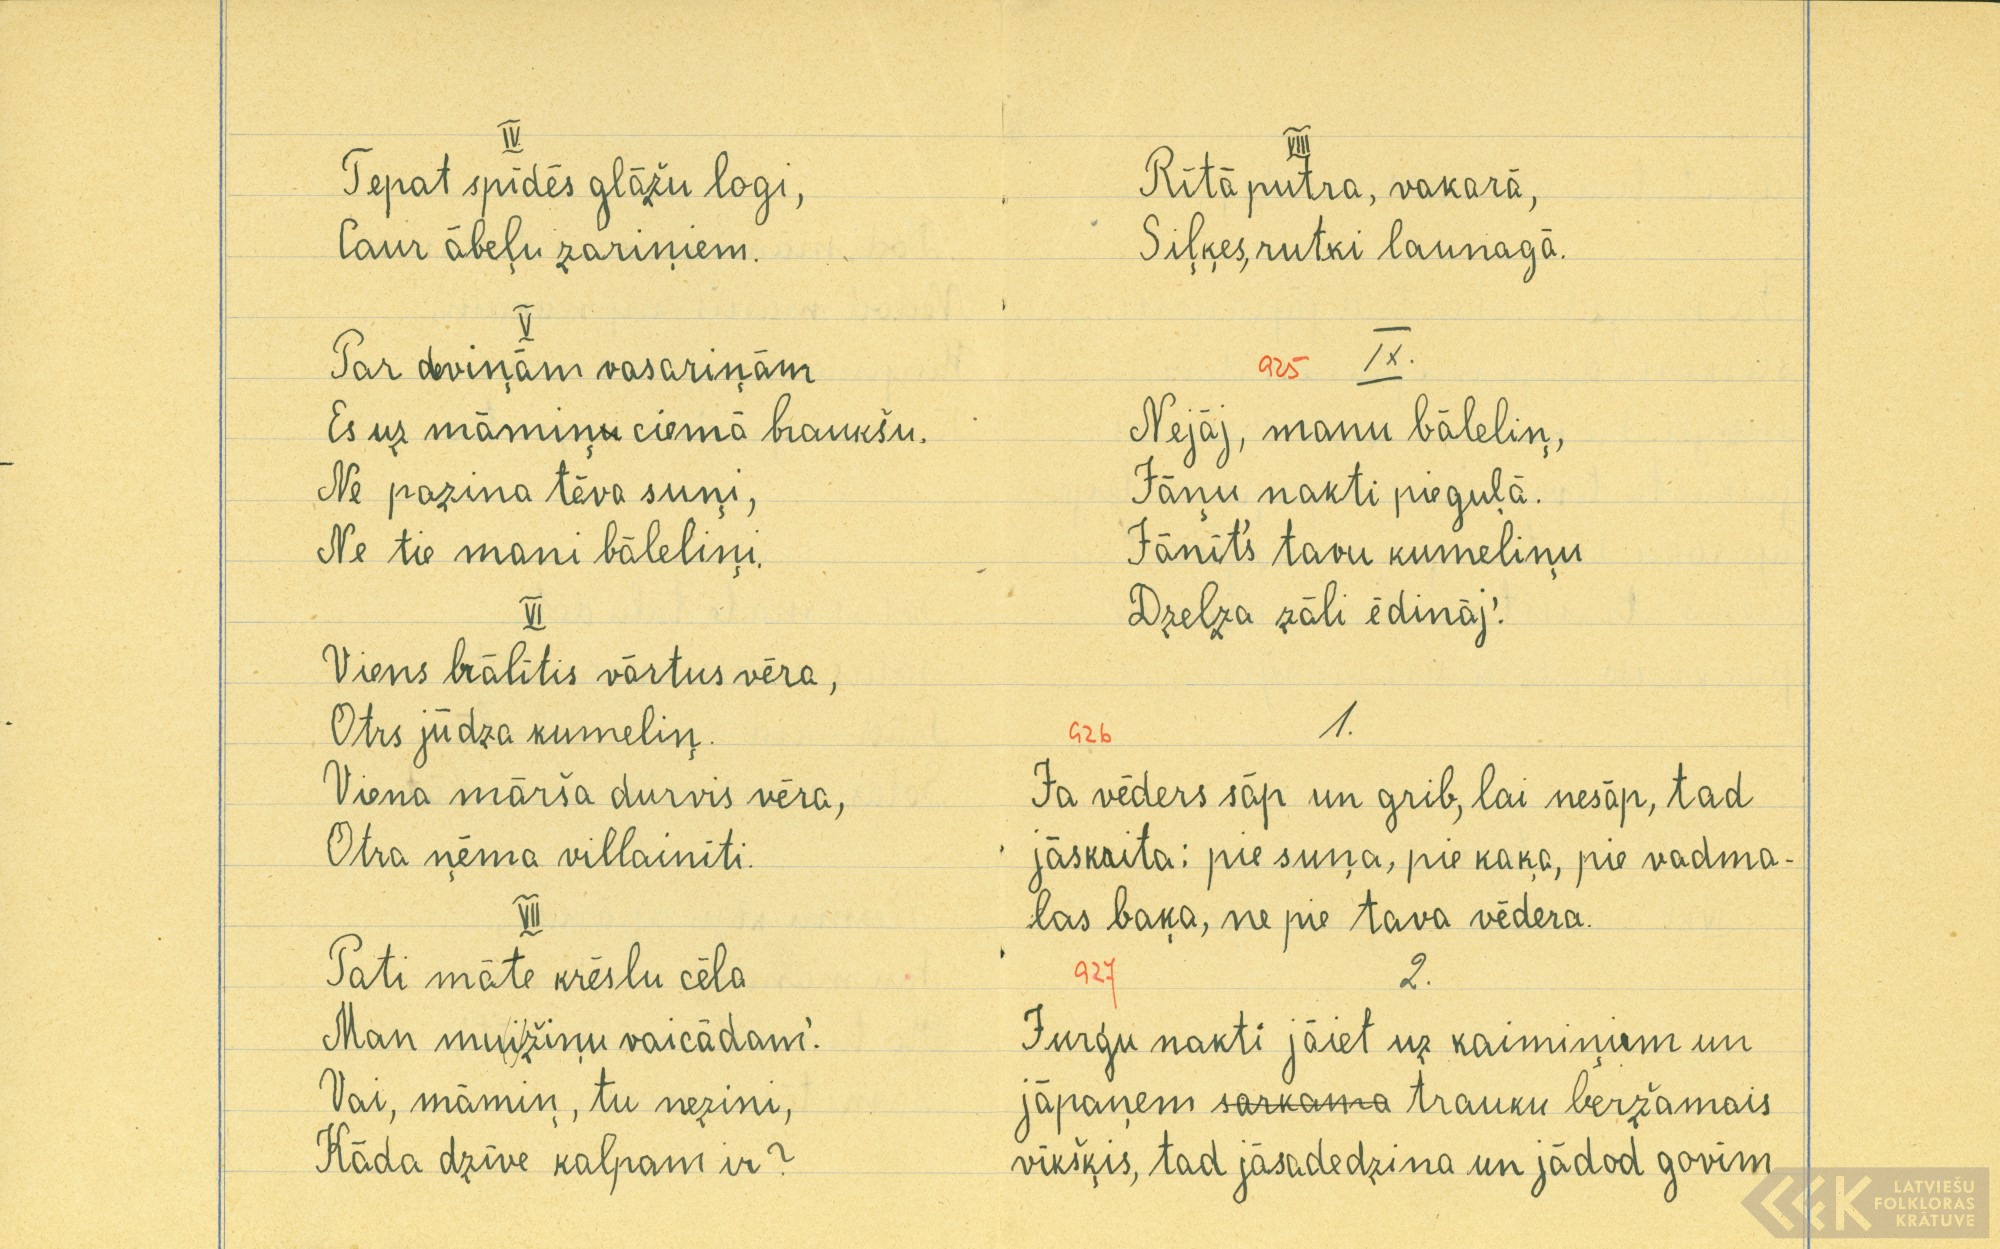 IV
Tepat spīdēs glāžu logi,
Caur ābeļu zariņiem.
V
Par deviņām vasariņām
Es uz māmiņu ciemā braukšu.
Ne pazina tēva suņi,
Ne tie mani bāleliņi.
VI
Viens brālītis vārtus vēra,
Otrs jūdza kumeliņ.
Viena mārša durvis vēra,
Otra ņēma villainīti.
VII
Pati māte krēslu cēla
Man muižiņu vaicādam'.
Vai, māmiņ, tu nezini,
Kāda dzīve kalpam ir?
VIII
Rītā putra, vakarā,
Siļķes, rutki launagā.
925 IX.
Nejāj, manu bāleliņ,
Jāņu nakti pieguļā.
Jānīt's tavu kumeliņu
Dzelza zāli ēdināj'.
926 1.
Ja vēders sāp un grib, lai nesāp, tad
jāskaita: pie suņa, pie kaķa, pie vadma-
las baķa, ne pie tava vēdera.
927 2.
Jurģu nakti jāiet uz kaimiņiem un
jāpaņem sarkama trauku beržamais
vīkšķis, tad jāsadedzina un jādod govīm
LATVIEŠU
FOLKLORAS
KRĀTUVE